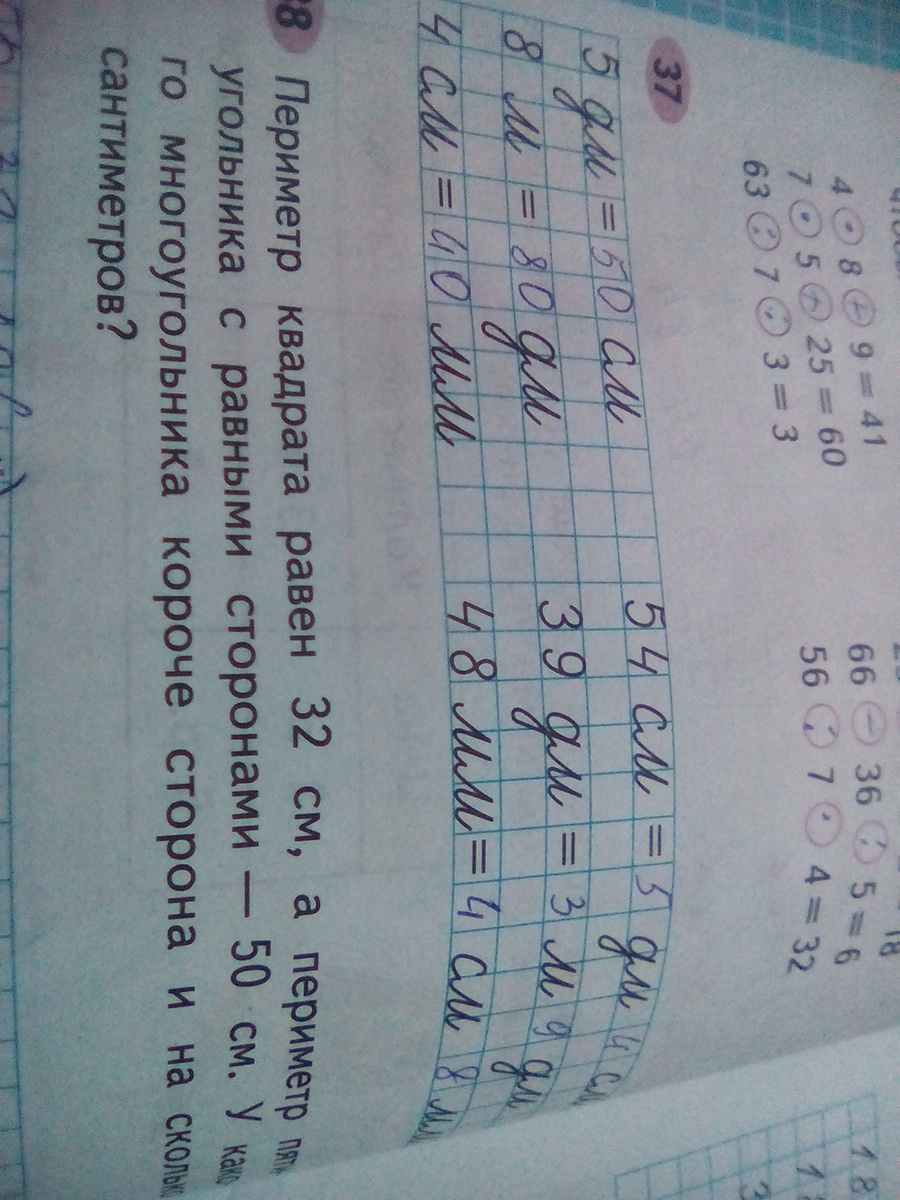 4 · 8 + 9 = 41
7 · 5 + 25 = 60
63 : 7 : 3 = 3
66 − 36 : 5 = 6
56 : 7 · 4 = 32
37
5 дм = 50 см 54 см = 5 дм 4 см
8 м = 80 дм 39 дм = 3 м 9 дм
4 см = 40 мм 48 мм = 4 см 8 м
38 Периметр квадрата равен 32 см, а периметр пяти
угольника с равными сторонами — 50 см. У како
го многоугольника короче сторона и на сколько
сантиметров?